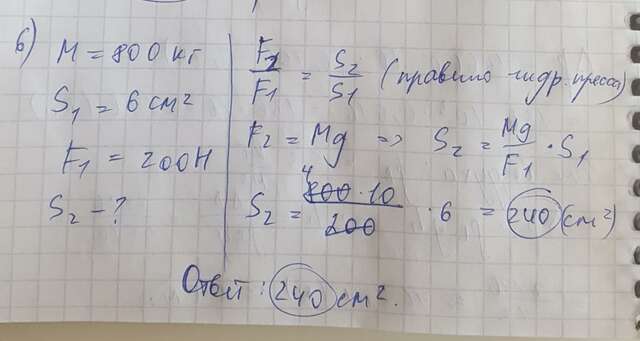 6) M = 800 кг
S₁ = 6 см²
F₁ = 200Н
S₂ - ?
F₂/F₁ = S₂/S₁ (правило гидр. пресса)
F₂ = Mg => S₂ = Mg/F₁ · S₁
S₂ = 4 800 · 10/200 · 6 = 240 (см²)
Ответ: 240 см².